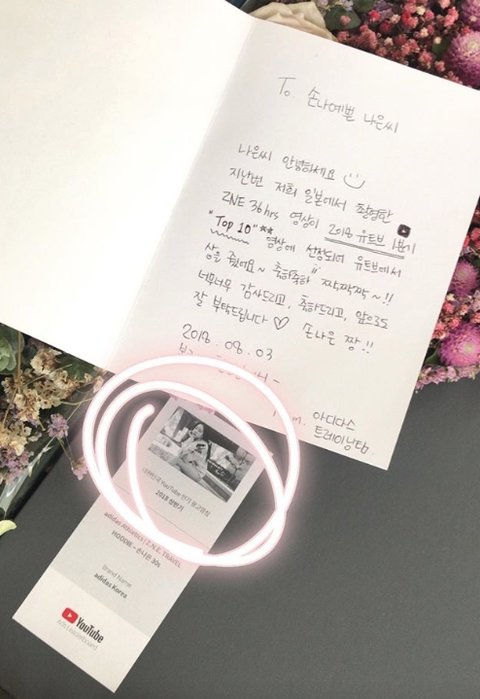 To. 손나예쁜 나은씨
나은씨 안녕하세요
지난번 저희 일본에서 촬영한
ZNE 36hrs 영상이 2018 유튜브 1분기
"Top 10"** 영상에 선정되어 유튜브에서
상을 줬어요~ 축하축하 짝짝짝~!!
너무너무 감사드리고, 축하드리고, 앞으로도
잘 부탁드립니다 ♡ 손나은 짱!!
2018. 08. 03
아디다스
트레이닝팀.
YouTube 인기 광고영상
2018 상반기
adidas Athletics | Z.N.E. TRAVEL
HOODIE - 손나은 30s
Brand Name
adidas Korea
YouTube
Ads Leaderboard